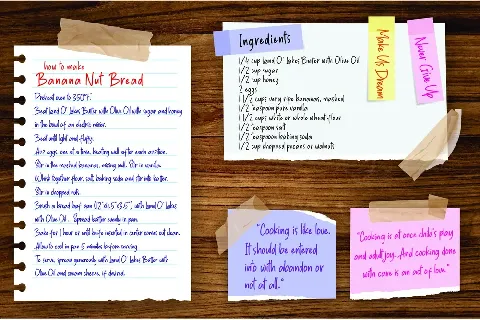 how to make
Banana Nut Bread
Preheat oven to 350°F.
Beat Land O' Lakes Butter with Olive Oil with sugar and honey
in the bowl of an electric mixer.
Beat until light and fluffy.
Add eggs, one at a time, beating well after each addition.
Stir in the mashed bananas, mixing well. Stir in vanilla.
Whisk together flour, salt, baking soda and stir into batter.
Stir in chopped nuts.
Smush a bread loaf pan with Land O' Lakes
with Olive Oil. Spread batter evenly in pan.
Bake for 1 hour or until knife inserted in center comes out clean.
Allow to cool in pan 5 minutes before removing.
To serve, spread generously with Land O' Lakes Butter with
Olive Oil and cream cheese, if desired.
Ingredients
1/4 cup Land O' Lakes Butter with Olive Oil
1/2 cup sugar
1/2 cup honey
2 eggs
1 1/2 cups very ripe bananas, mashed
1/2 teaspoon pure vanilla
1 1/2 cups white or whole wheat flour
1/2 teaspoon salt
1/2 teaspoon baking soda
1/2 cup chopped pecans or walnuts
Make Us Dream
Never Give Up
"Cooking is like love.
It should be entered
into with abandon or
not at all."
"Cooking is at once child's play
and adult joy. And cooking done
with care is an act of love."